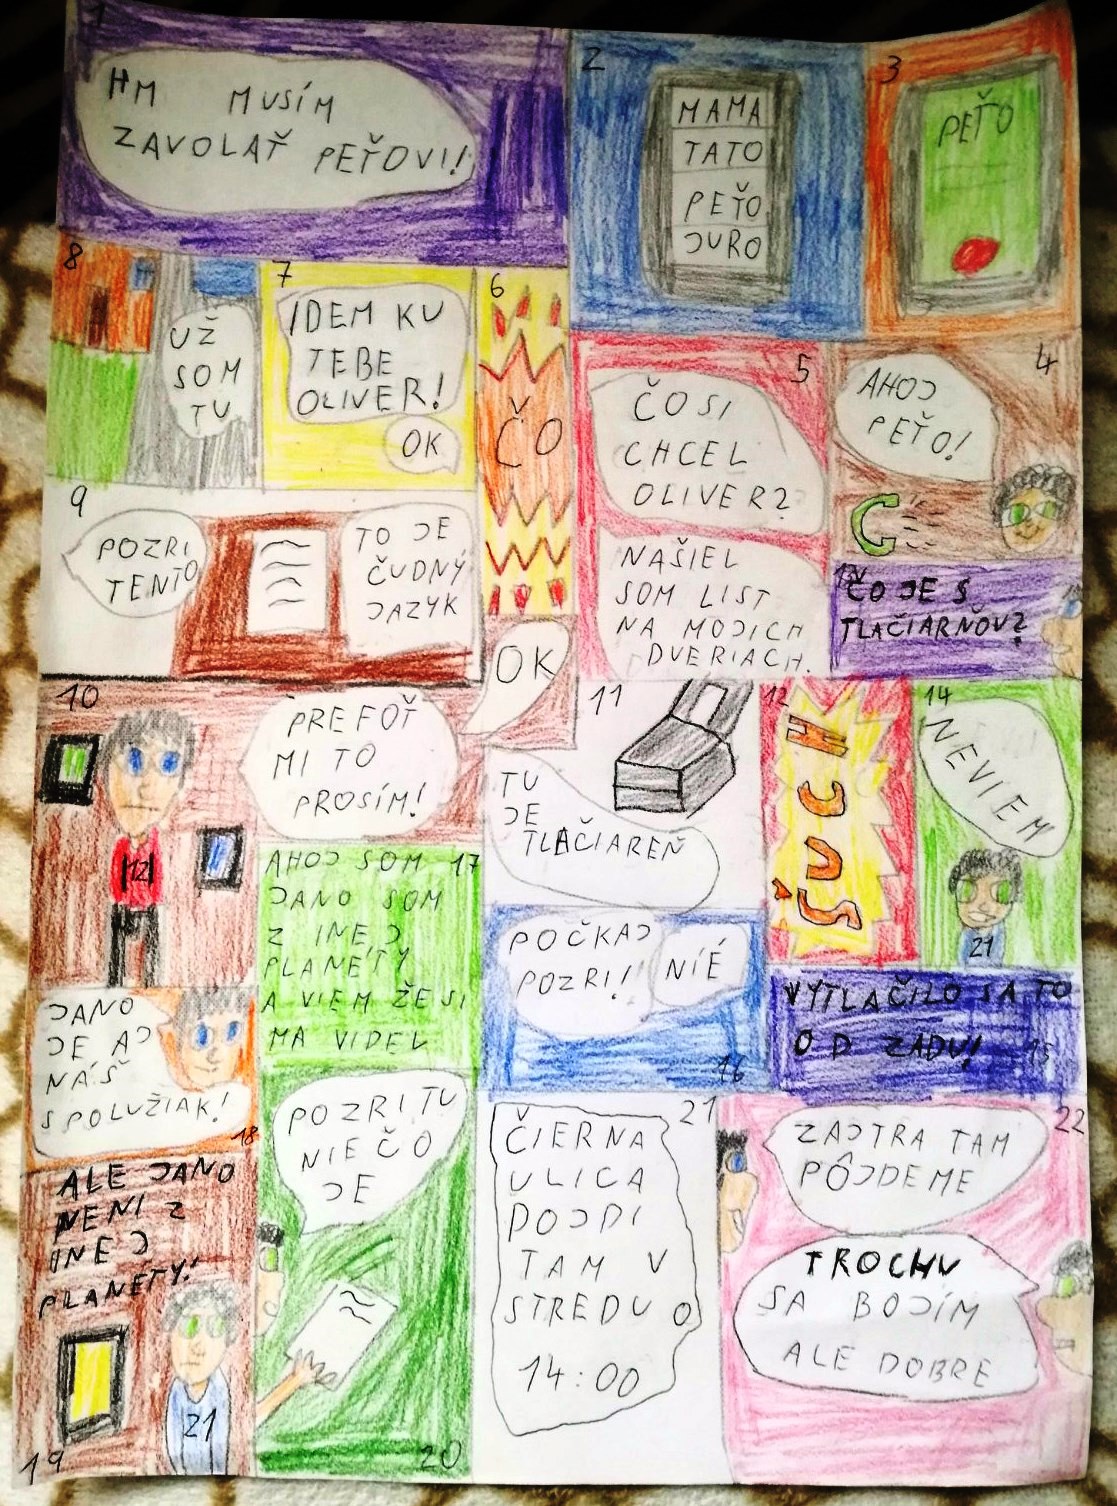 1
HM MUSÍM
ZAVOLAŤ PEŤOVI!
2
MAMA
TATO
PEŤO
JURO
3
PEŤO
4
AHOJ
PEŤO!
5
ČO SI
CHCEL
OLIVER?
NAŠIEL
SOM LIST
NA MOJICH
DVERIACH.
6
ČO
7
IDEM KU
TEBE
OLIVER!
OK
8
UŽ
SOM
TU
9
POZRI
TENTO
TO JE
ČUDNÝ
JAZYK
10
12
PREFOŤ
MI TO
PROSÍM!
OK
11
TU
JE
TLAČIAREŇ
12
HJUŠ
13
ČO JE S
TLAČIARŇOU?
14
NEVIEM
21
VYTLAČILO SA TO
OD ZADU!
15
POČKAJ
POZRI!
NIÉ
16
17
AHOJ SOM
JANO SOM
Z INEJ
PLANÉTY
A VIEM ŽE SI
MA VIDEL
JANO
JE AJ
NÁŠ
SPOLUŽIAK!
18
ALE JANO
NENI Z
INEJ
PLANÉTY!
21
19
POZRI TU
NIEČO
JE
20
21
ČIERNA
ULICA
POJDI
TAM V
STREDU O
14:00
22
ZAJTRA TAM
PÔJDEME
TROCHU
SA BOJÍM
ALE DOBRE